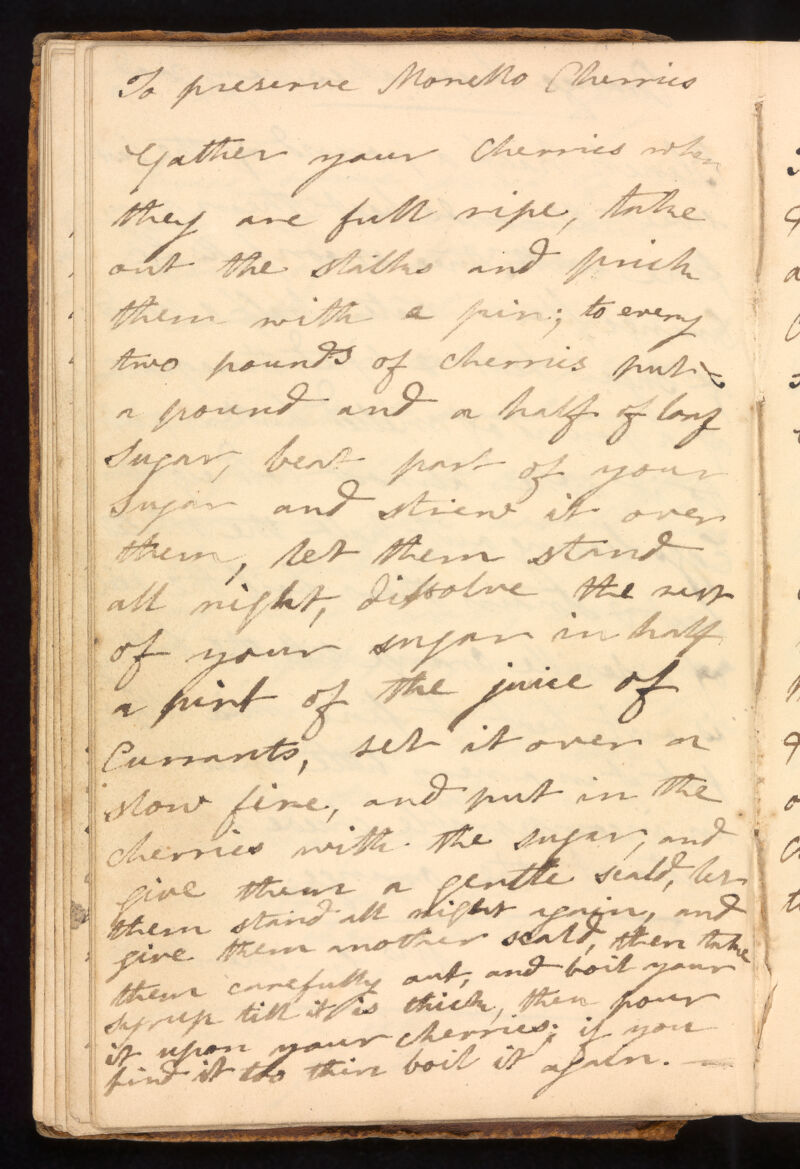 To preserve Morello Cherries
Gather your Cherries when
they are full ripe, take
out the stalks and prick
them with a pin; to every
two pounds of cherries put
a pound and a half of loaf
Sugar, beat part of your
Sugar and strew it over
them, let them stand
all night, dissolve the rest
of your sugar in half
a pint of the juice of
Currants, set it over a
slow fire, and put in the
cherries with the sugar, and
give them a gentle scald, let
them stand all night again, and
give them another scald, then take
them carefully out, and boil your
syrup till it is thick, then pour
it upon your cherries; if you
find it too thin boil it again. —